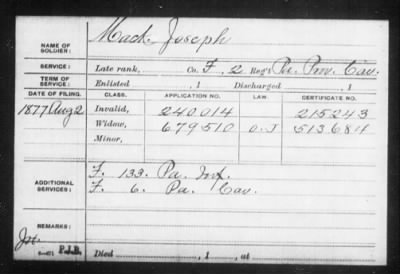 NAME OF SOLDIER: Mack, Joseph
SERVICE: Late rank, Co. F, 2 Reg't Pa. Prov. Cav.
TERM OF SERVICE: Enlisted , 1 Discharged , 1
DATE OF FILING. CLASS. APPLICATION NO. LAW. CERTIFICATE NO.
1877 Aug 2 Invalid, 240014 215243
Widow, 679510 O.L. 513684
Minor,
ADDITIONAL SERVICES: F. 133. Pa. Inf.
F. 6. Pa. Cav.
REMARKS:
P.J.B.
Died , 1 , at